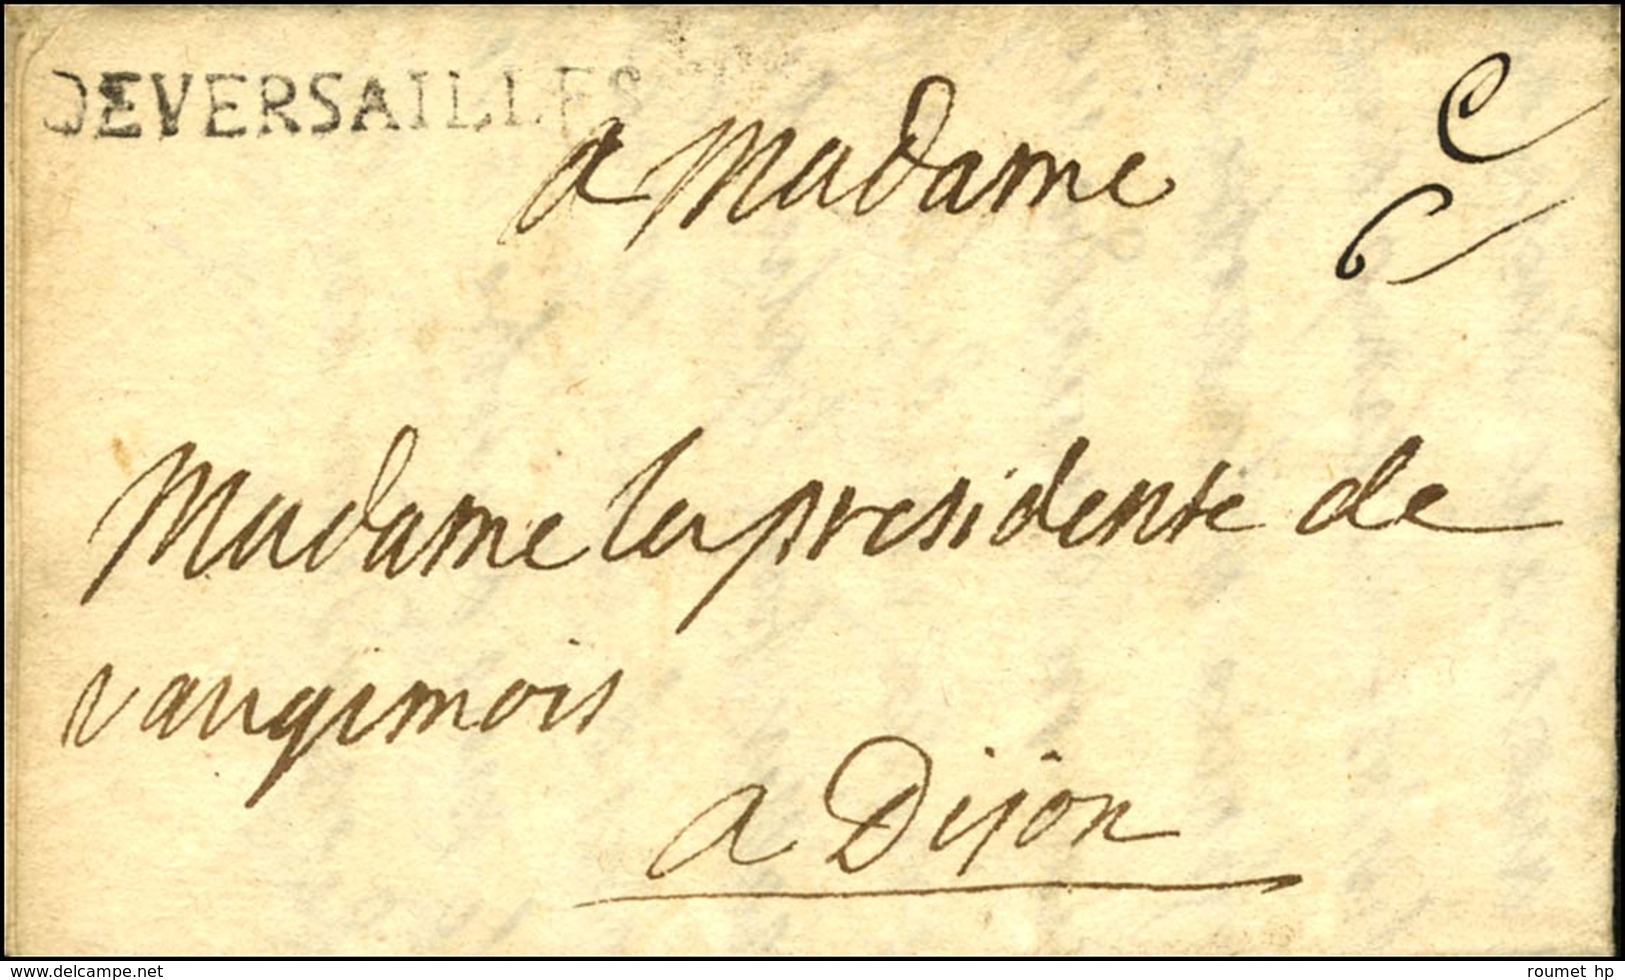 DEVERSAILLES
a Madame
Madame la presidente de
vaugimois
a Dijon
delcampe.net
roumet hp